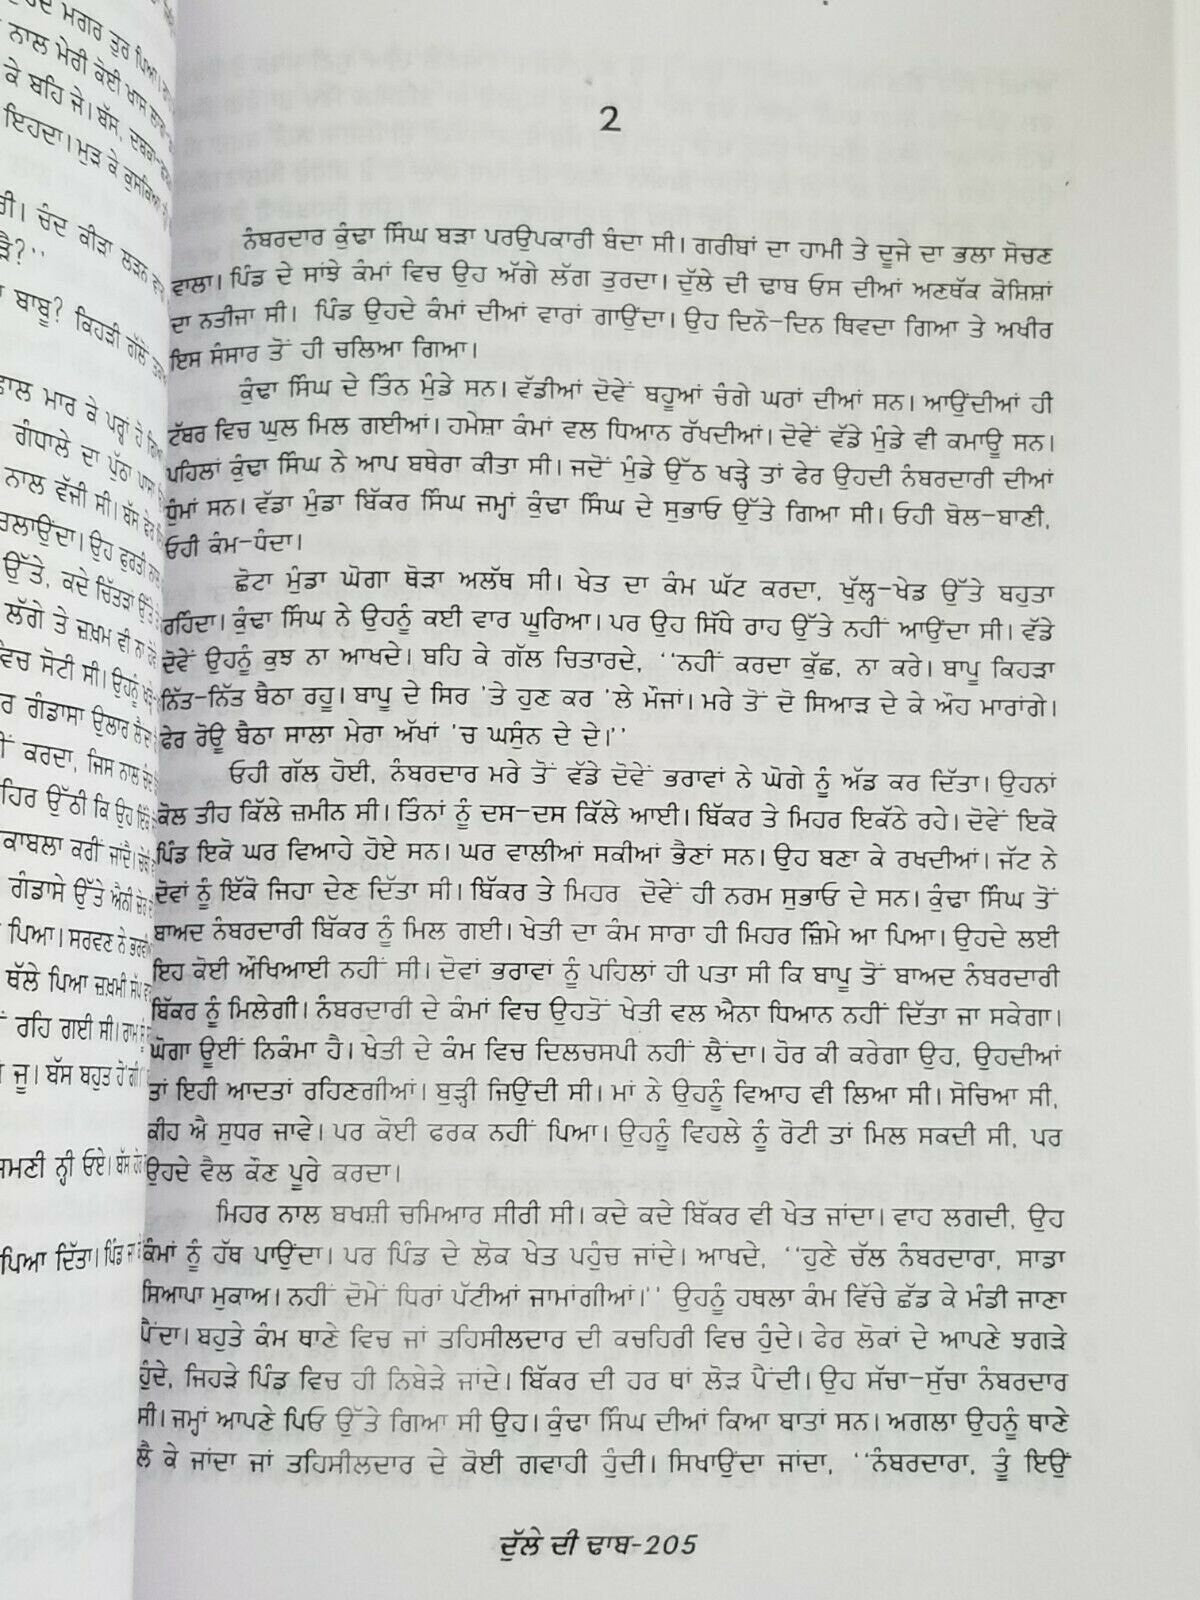 ਮਗਰ ਤੁਰ ਪਿਆ।
ਨਾਲ ਮੇਰੀ ਕੋਈ ਖਾਸ
ਕੇ ਬਹਿ ਜੇ। ਬੱਸ,
ਇਹਦਾ। ਮੁੜ ਕੇ ਕੁਸਕਿਆ
ਚੰਦ ਕੀੜਾ ਲੜਨ
ਬਾਬੂ? ਕਿਹੜੀ ਗੱਲੋਂ
ਮਾਰ ਕੇ ਪਰ੍ਹਾਂ ਹੋ ਗਿਆ
ਗੰਧਾਲੇ ਦਾ ਪੁੱਠਾ ਪਾਸਾ
ਨਾਲ ਵੱਜੀ ਸੀ। ਬੱਸ ਫੇਰ
ਉਹ ਫੁਰਤੀ ਨਾਲ
ਉੱਤੇ, ਕਦੇ ਚਿੱਤੜਾਂ ਉੱਤੇ
ਲੱਗੇ ਤੇ ਜ਼ਖ਼ਮ ਵੀ ਨਾ ਹੋਵੇ
ਵਿਚ ਸੋਟੀ ਸੀ। ਉਹਨੂੰ
ਗੰਡਾਸਾ ਉਲਾਰ ਲੈਂਦਾ
ਕਰਦਾ, ਜਿਸ ਨਾਲ ਚੰਦ
ਉੱਠੀ ਕਿ ਉਹ ਇੱਕੋ
ਕਰੀਂ ਜਾਂਦੈ।
ਗੰਡਾਸੇ ਉੱਤੇ ਐਨੀ ਜ਼ੋਰ ਦੀ
ਪਿਆ। ਸਰਵਣ ਨੇ
ਥੱਲੇ ਪਿਆ ਜ਼ਖ਼ਮੀ ਸੱਪ
ਰਹਿ ਗਈ ਸੀ।
ਜੂ। ਬੱਸ ਬਹੁਤ ਹੋ ਗੀ।
ਨ੍ਹੀ ਓਏ। ਬੱਸ
ਪਿਆ ਦਿੱਤਾ। ਪਿੰਡ ਜਾ
2
ਨੰਬਰਦਾਰ ਕੁੰਢਾ ਸਿੰਘ ਬੜਾ ਪਰਉਪਕਾਰੀ ਬੰਦਾ ਸੀ। ਗਰੀਬਾਂ ਦਾ ਹਾਮੀ ਤੇ ਦੂਜੇ ਦਾ ਭਲਾ ਸੋਚਣ
ਵਾਲਾ। ਪਿੰਡ ਦੇ ਸਾਂਝੇ ਕੰਮਾਂ ਵਿਚ ਉਹ ਅੱਗੇ ਲੱਗ ਤੁਰਦਾ। ਦੁੱਲੇ ਦੀ ਢਾਬ ਓਸ ਦੀਆਂ ਅਣਥੱਕ ਕੋਸ਼ਿਸ਼ਾਂ
ਦਾ ਨਤੀਜਾ ਸੀ। ਪਿੰਡ ਉਹਦੇ ਕੰਮਾਂ ਦੀਆਂ ਵਾਰਾਂ ਗਾਉਂਦਾ। ਉਹ ਦਿਨੋ-ਦਿਨ ਥਿਵਦਾ ਗਿਆ ਤੇ ਅਖੀਰ
ਇਸ ਸੰਸਾਰ ਤੋਂ ਹੀ ਚਲਿਆ ਗਿਆ।
ਕੁੰਢਾ ਸਿੰਘ ਦੇ ਤਿੰਨ ਮੁੰਡੇ ਸਨ। ਵੱਡੀਆਂ ਦੋਵੇਂ ਬਹੂਆਂ ਚੰਗੇ ਘਰਾਂ ਦੀਆਂ ਸਨ। ਆਉਂਦੀਆਂ ਹੀ
ਟੱਬਰ ਵਿਚ ਘੁਲ ਮਿਲ ਗਈਆਂ। ਹਮੇਸ਼ਾ ਕੰਮਾਂ ਵਲ ਧਿਆਨ ਰੱਖਦੀਆਂ। ਦੋਵੇਂ ਵੱਡੇ ਮੁੰਡੇ ਵੀ ਕਮਾਊ ਸਨ।
ਪਹਿਲਾਂ ਕੁੰਢਾ ਸਿੰਘ ਨੇ ਆਪ ਬਥੇਰਾ ਕੀਤਾ ਸੀ। ਜਦੋਂ ਮੁੰਡੇ ਉੱਠ ਖੜ੍ਹੇ ਤਾਂ ਫੇਰ ਉਹਦੀ ਨੰਬਰਦਾਰੀ ਦੀਆਂ
ਧੁੰਮਾਂ ਸਨ। ਵੱਡਾ ਮੁੰਡਾ ਬਿੱਕਰ ਸਿੰਘ ਜਮ੍ਹਾਂ ਕੁੰਢਾ ਸਿੰਘ ਦੇ ਸੁਭਾਓ ਉੱਤੇ ਗਿਆ ਸੀ। ਓਹੀ ਬੋਲ-ਬਾਣੀ,
ਓਹੀ ਕੰਮ-ਧੰਦਾ।
ਛੋਟਾ ਮੁੰਡਾ ਘੋਗਾ ਥੋੜਾ ਅਲੱਥ ਸੀ। ਖੇਤ ਦਾ ਕੰਮ ਘੱਟ ਕਰਦਾ, ਖੁੱਲ੍ਹ-ਖੇਡ ਉੱਤੇ ਬਹੁਤਾ
ਰਹਿੰਦਾ। ਕੁੰਢਾ ਸਿੰਘ ਨੇ ਉਹਨੂੰ ਕਈ ਵਾਰ ਘੂਰਿਆ। ਪਰ ਉਹ ਸਿੱਧੇ ਰਾਹ ਉੱਤੇ ਨਹੀਂ ਆਉਂਦਾ ਸੀ। ਵੱਡੇ
ਦੋਵੇਂ ਉਹਨੂੰ ਕੁਝ ਨਾ ਆਖਦੇ। ਬਹਿ ਕੇ ਗੱਲ ਚਿਤਾਰਦੇ, ''ਨਹੀਂ ਕਰਦਾ ਕੁੱਛ, ਨਾ ਕਰੇ। ਬਾਪੂ ਕਿਹੜਾ
ਨਿੱਤ-ਨਿੱਤ ਬੈਠਾ ਰਹੂ। ਬਾਪੂ ਦੇ ਸਿਰ 'ਤੇ ਹੁਣ ਕਰ 'ਲੇ ਮੌਜਾਂ। ਮਰੇ ਤੋਂ ਦੋ ਸਿਆੜ ਦੇ ਕੇ ਔਹ ਮਾਰਾਂਗੇ।
ਫੇਰ ਰੋਊ ਬੈਠਾ ਸਾਲਾ ਮੇਰਾ ਅੱਖਾਂ 'ਚ ਘਸੁੰਨ ਦੇ ਦੇ।''
ਓਹੀ ਗੱਲ ਹੋਈ, ਨੰਬਰਦਾਰ ਮਰੇ ਤੋਂ ਵੱਡੇ ਦੋਵੇਂ ਭਰਾਵਾਂ ਨੇ ਘੋਗੇ ਨੂੰ ਅੱਡ ਕਰ ਦਿੱਤਾ। ਉਹਨਾਂ
ਕੋਲ ਤੀਹ ਕਿੱਲੇ ਜ਼ਮੀਨ ਸੀ। ਤਿੰਨਾਂ ਨੂੰ ਦਸ-ਦਸ ਕਿੱਲੇ ਆਈ। ਬਿੱਕਰ ਤੇ ਮਿਹਰ ਇਕੱਠੇ ਰਹੇ। ਦੋਵੇਂ ਇਕੋ
ਪਿੰਡ ਇਕੋ ਘਰ ਵਿਆਹੇ ਹੋਏ ਸਨ। ਘਰ ਵਾਲੀਆਂ ਸਕੀਆਂ ਭੈਣਾਂ ਸਨ। ਉਹ ਬਣਾ ਕੇ ਰਖਦੀਆਂ। ਜੱਟ ਨੇ
ਦੋਵਾਂ ਨੂੰ ਇੱਕੋ ਜਿਹਾ ਦੇਣ ਦਿੱਤਾ ਸੀ। ਬਿੱਕਰ ਤੇ ਮਿਹਰ ਦੋਵੇਂ ਹੀ ਨਰਮ ਸੁਭਾਓ ਦੇ ਸਨ। ਕੁੰਢਾ ਸਿੰਘ ਤੋਂ
ਬਾਅਦ ਨੰਬਰਦਾਰੀ ਬਿੱਕਰ ਨੂੰ ਮਿਲ ਗਈ। ਖੇਤੀ ਦਾ ਕੰਮ ਸਾਰਾ ਹੀ ਮਿਹਰ ਜ਼ਿੰਮੇ ਆ ਪਿਆ। ਉਹਦੇ ਲਈ
ਇਹ ਕੋਈ ਔਖਿਆਈ ਨਹੀਂ ਸੀ। ਦੋਵਾਂ ਭਰਾਵਾਂ ਨੂੰ ਪਹਿਲਾਂ ਹੀ ਪਤਾ ਸੀ ਕਿ ਬਾਪੂ ਤੋਂ ਬਾਅਦ ਨੰਬਰਦਾਰੀ
ਬਿੱਕਰ ਨੂੰ ਮਿਲੇਗੀ। ਨੰਬਰਦਾਰੀ ਦੇ ਕੰਮਾਂ ਵਿਚ ਉਹਤੋਂ ਖੇਤੀ ਵਲ ਐਨਾ ਧਿਆਨ ਨਹੀਂ ਦਿੱਤਾ ਜਾ ਸਕੇਗਾ।
ਘੋਗਾ ਊਈਂ ਨਿਕੰਮਾ ਹੈ। ਖੇਤੀ ਦੇ ਕੰਮ ਵਿਚ ਦਿਲਚਸਪੀ ਨਹੀਂ ਲੈਂਦਾ। ਹੋਰ ਕੀ ਕਰੇਗਾ ਉਹ, ਉਹਦੀਆਂ
ਤਾਂ ਇਹੀ ਆਦਤਾਂ ਰਹਿਣਗੀਆਂ। ਬੁੜ੍ਹੀ ਜਿਉਂਦੀ ਸੀ। ਮਾਂ ਨੇ ਉਹਨੂੰ ਵਿਆਹ ਵੀ ਲਿਆ ਸੀ। ਸੋਚਿਆ ਸੀ,
ਕੀਹ ਐ ਸੁਧਰ ਜਾਵੇ। ਪਰ ਕੋਈ ਫਰਕ ਨਹੀਂ ਪਿਆ। ਉਹਨੂੰ ਵਿਹਲੇ ਨੂੰ ਰੋਟੀ ਤਾਂ ਮਿਲ ਸਕਦੀ ਸੀ, ਪਰ
ਉਹਦੇ ਵੈਲ ਕੌਣ ਪੂਰੇ ਕਰਦਾ।
ਮਿਹਰ ਨਾਲ ਬਖਸ਼ੀ ਚਮਿਆਰ ਸੀਰੀ ਸੀ। ਕਦੇ ਕਦੇ ਬਿੱਕਰ ਵੀ ਖੇਤ ਜਾਂਦਾ। ਵਾਹ ਲਗਦੀ, ਉਹ
ਕੰਮਾਂ ਨੂੰ ਹੱਥ ਪਾਉਂਦਾ। ਪਰ ਪਿੰਡ ਦੇ ਲੋਕ ਖੇਤ ਪਹੁੰਚ ਜਾਂਦੇ। ਆਖਦੇ, ''ਹੁਣੇ ਚੱਲ ਨੰਬਰਦਾਰਾ, ਸਾਡਾ
ਸਿਆਪਾ ਮੁਕਾਅ। ਨਹੀਂ ਦੋਮੇਂ ਧਿਰਾਂ ਪੱਟੀਆਂ ਜਾਮਾਂਗੀਆਂ।'' ਉਹਨੂੰ ਹਥਲਾ ਕੰਮ ਵਿੱਚੇ ਛੱਡ ਕੇ ਮੰਡੀ ਜਾਣਾ
ਪੈਂਦਾ। ਬਹੁਤੇ ਕੰਮ ਥਾਣੇ ਵਿਚ ਜਾਂ ਤਹਿਸੀਲਦਾਰ ਦੀ ਕਚਹਿਰੀ ਵਿਚ ਹੁੰਦੇ। ਫੇਰ ਲੋਕਾਂ ਦੇ ਆਪਣੇ ਝਗੜੇ
ਹੁੰਦੇ, ਜਿਹੜੇ ਪਿੰਡ ਵਿਚ ਹੀ ਨਿਬੇੜੇ ਜਾਂਦੇ। ਬਿੱਕਰ ਦੀ ਹਰ ਥਾਂ ਲੋੜ ਪੈਂਦੀ। ਉਹ ਸੱਚਾ-ਸੁੱਚਾ ਨੰਬਰਦਾਰ
ਸੀ। ਜਮ੍ਹਾਂ ਆਪਣੇ ਪਿਓ ਉੱਤੇ ਗਿਆ ਸੀ ਉਹ। ਕੁੰਢਾ ਸਿੰਘ ਦੀਆਂ ਕਿਆ ਬਾਤਾਂ ਸਨ। ਅਗਲਾ ਉਹਨੂੰ ਥਾਣੇ
ਲੈ ਕੇ ਜਾਂਦਾ ਜਾਂ ਤਹਿਸੀਲਦਾਰ ਦੇ ਕੋਈ ਗਵਾਹੀ ਹੁੰਦੀ। ਸਿਖਾਉਂਦਾ ਜਾਂਦਾ, ''ਨੰਬਰਦਾਰਾ, ਤੂੰ ਇਉਂ
ਦੁੱਲੇ ਦੀ ਢਾਬ-205